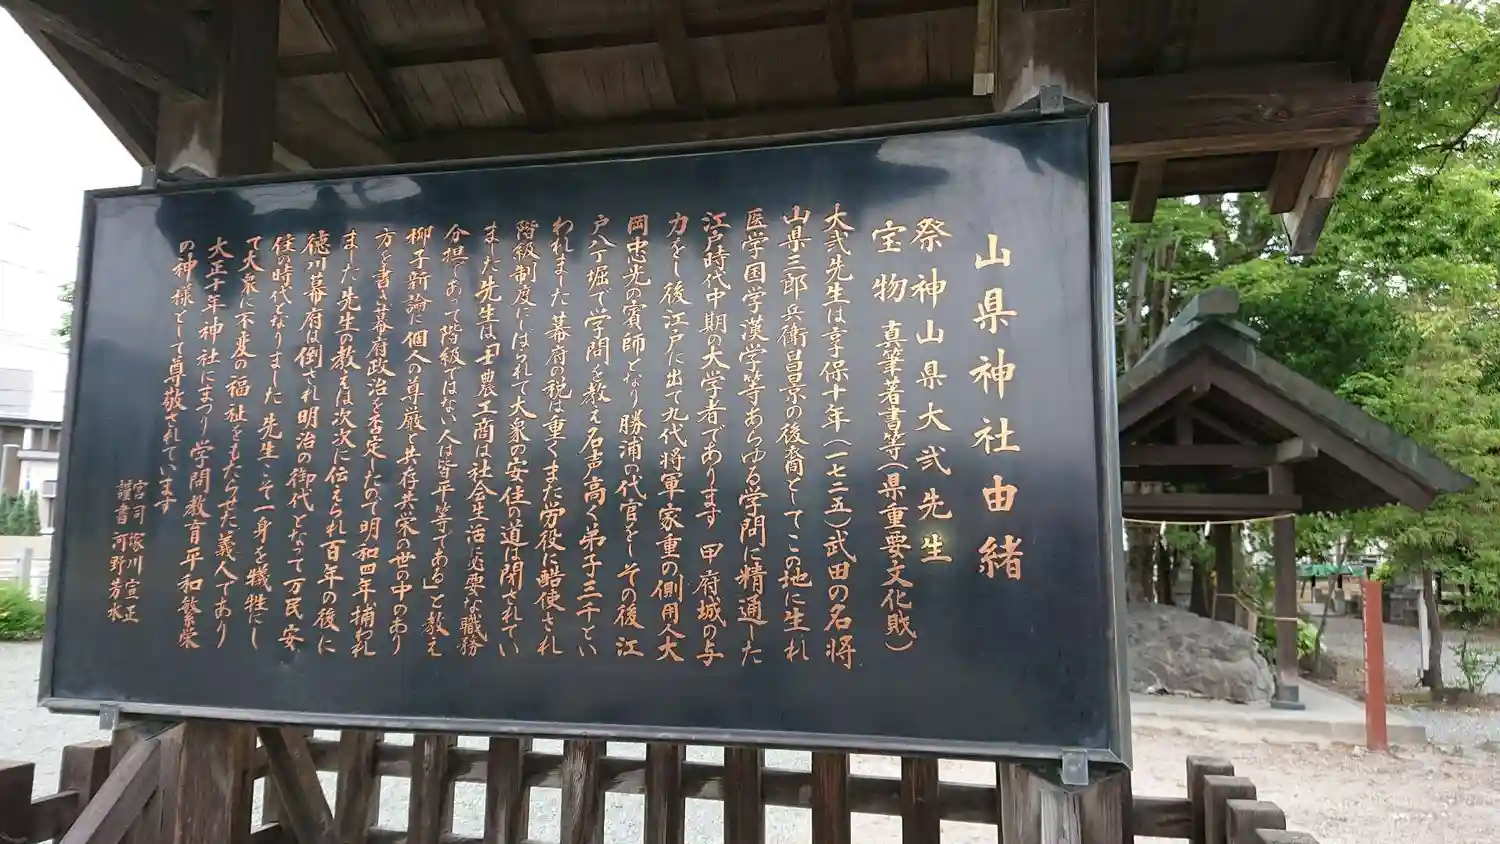 山県神社由緒
祭神山県大弐先生
宝物 真筆著書等(県重要文化財)
大弐先生は享保十年(一七二五)武田の名将
山県三郎兵衛昌景の後裔としてこの地に生れ
医学国学漢学等あらゆる学問に精通した
江戸時代中期の大学者であります 甲府城の与
力をし後江戸に出て九代将軍家重の側用人大
岡忠光の賓師となり勝浦の代官をしその後江
戸八丁堀で学問を教え名声高く弟子三千とい
われました 幕府の税は重くまた労役に酷使され
階級制度にしばられて大衆の安住の道は閉されてい
ました 先生は「士農工商は社会生活に必要な職務
分担であって階級ではない人は皆平等である」と教え
柳子新論に個人の尊厳と共存共栄の世の中のあり
方を書き幕府政治を否定したので明和四年捕われ
ました 先生の教えは次次に伝えられ百年の後に
徳川幕府は倒され明治の御代となって万民安
住の時代となりました 先生こそ一身を犠牲にし
て大衆に不変の福祉をもたらせた義人であり
大正十年神社にまつり学問教育平和繁栄
の神様として尊敬されています
宮司 塚川宣正
謹書 河野芳水